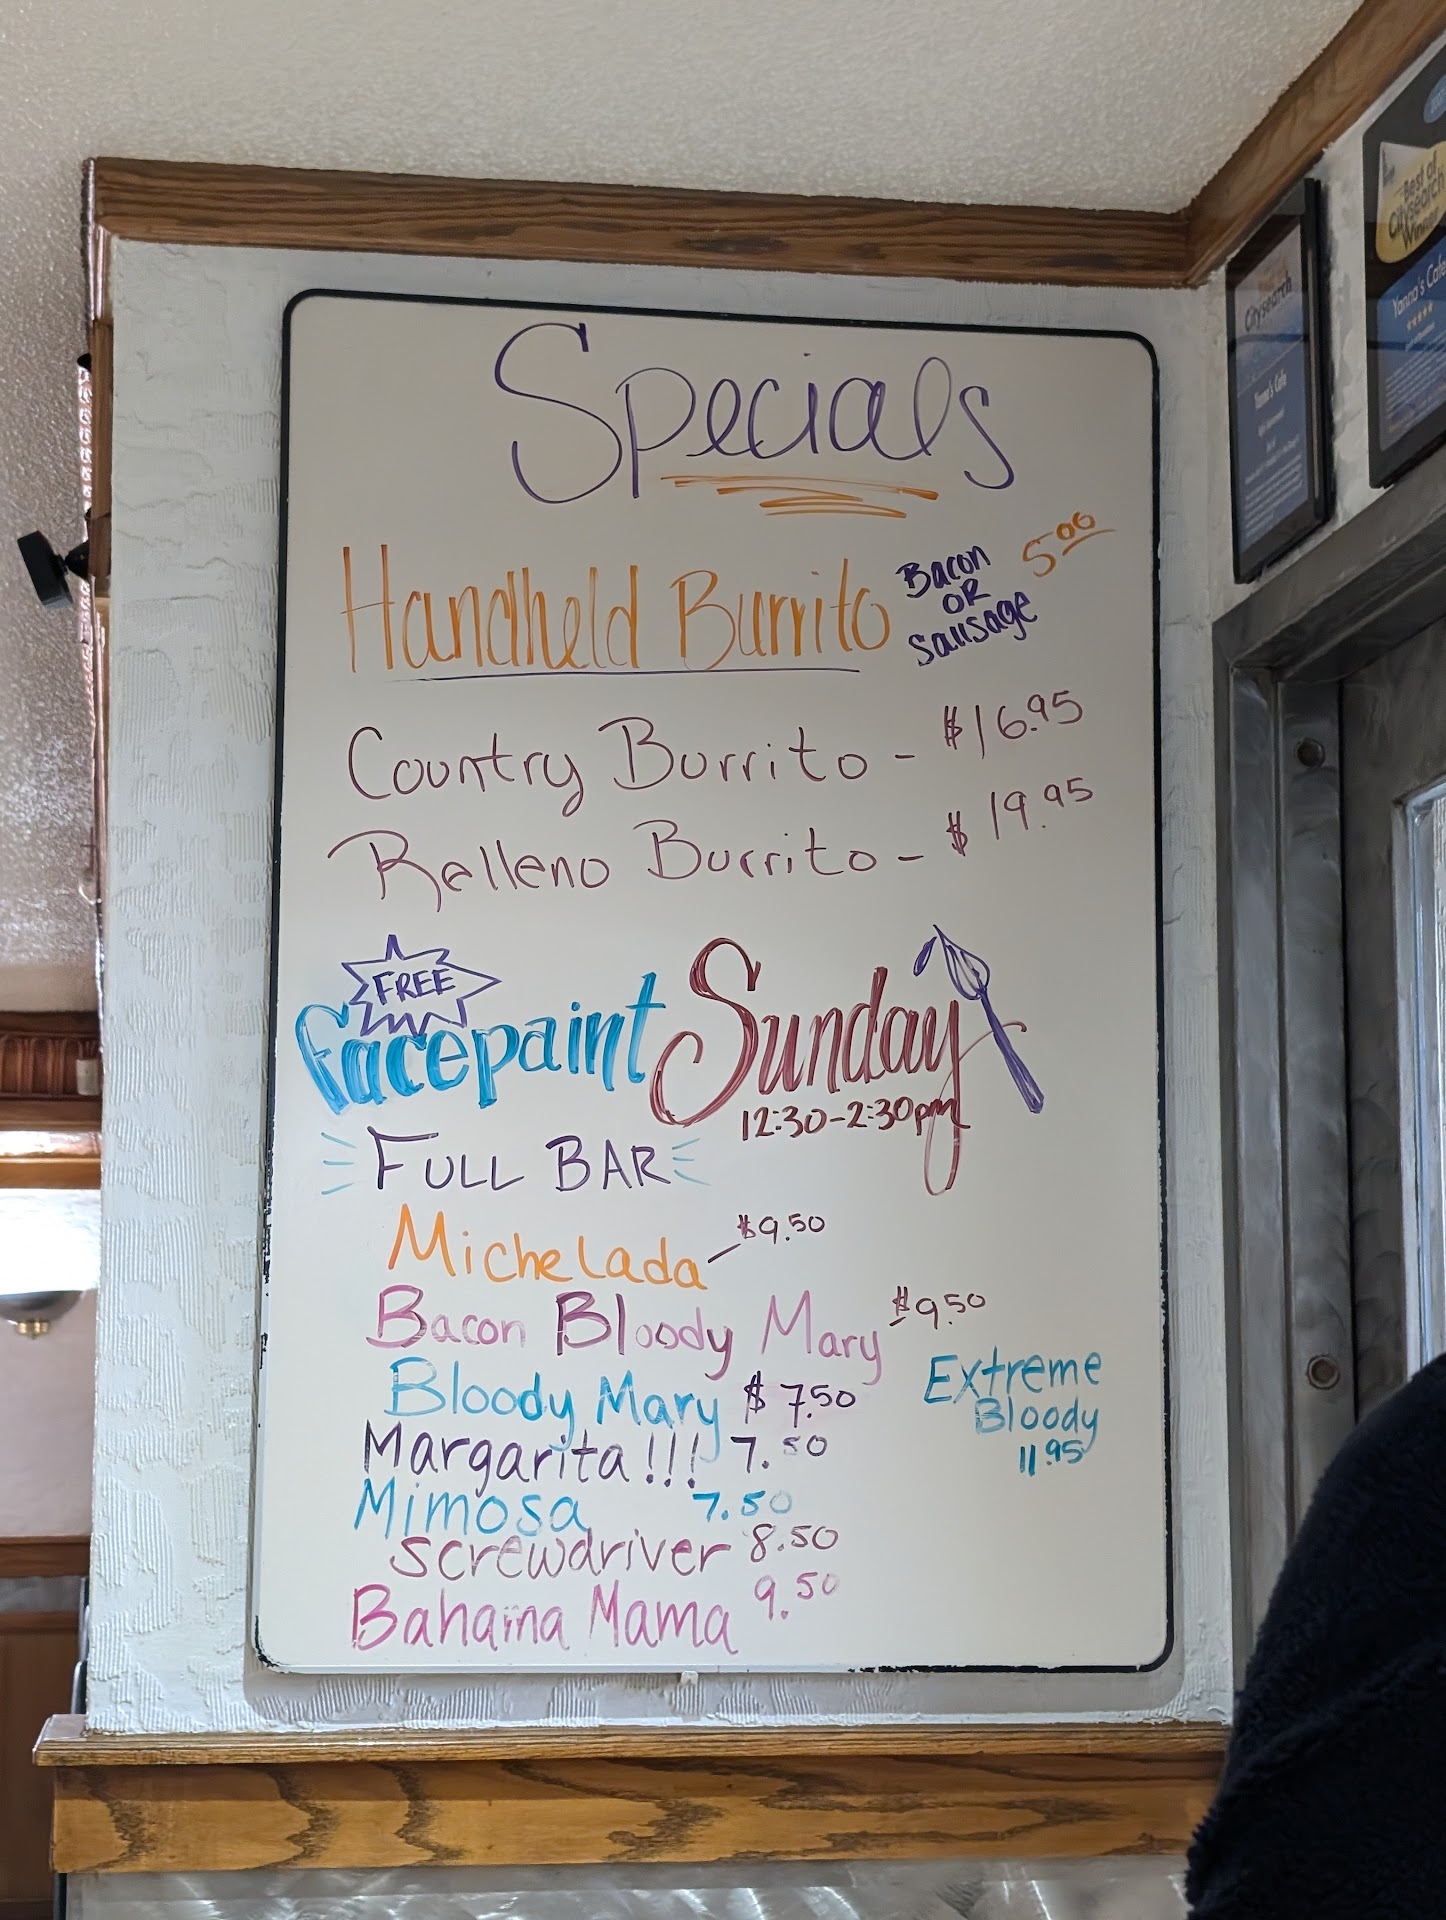 Specials
Handheld Burrito Bacon OR Sausage 5.00
Country Burrito - $16.95
Relleno Burrito - $19.95
FREE
facepaint Sunday
12:30-2:30pm
FULL BAR
Michelada - $9.50
Bacon Bloody Mary $9.50
Bloody Mary $7.50
Extreme
Bloody
11.95
Margarita!!! 7.50
Mimosa 7.50
screwdriver 8.50
Bahama Mama 9.50
Citysearch
Yanna's Cafe
Best of
Citysearch
Winner
Yanna's Cafe